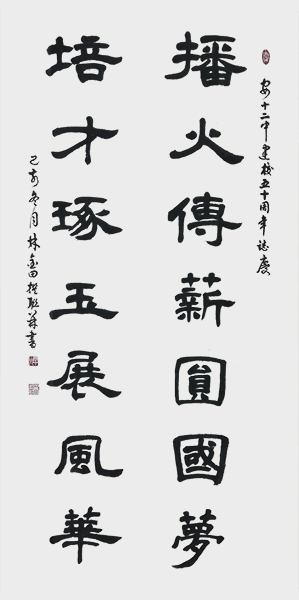 安十二中建校五十周年誌慶
播火傳薪圓國夢
培才琢玉展風華
己亥冬月林金田撰聯并書